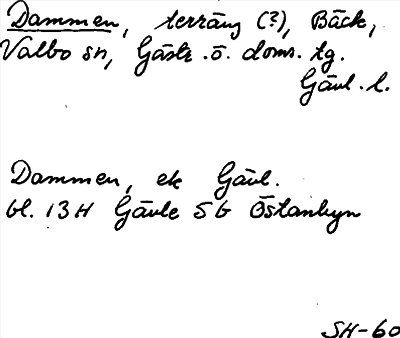 Dammen, terräng (?), Bäck,
Valbo sn, Gästr. ö. doms. tg.
Gävl. l.
Dammen, ek Gävl.
bl. 13H Gävle SG Östanbyn
SH-60